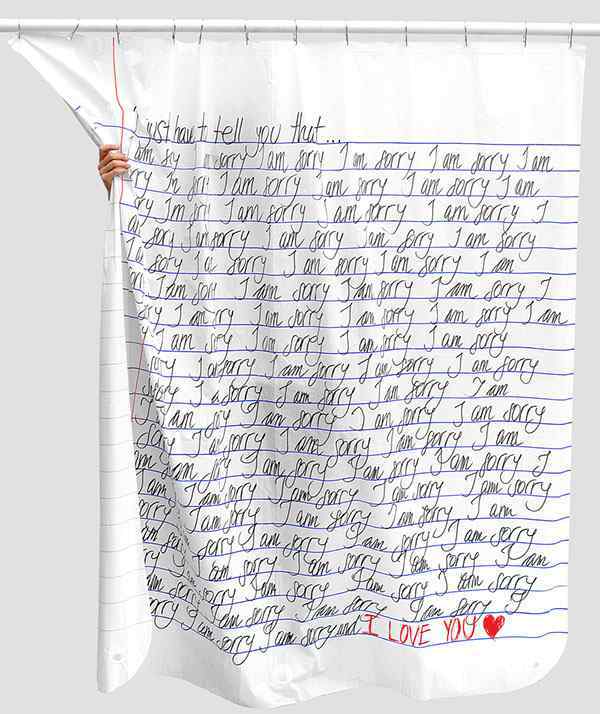 just tell you that...
am sorry I am sorry I am sorry I am sorry I am
I am sorry I am sorry I am sorry I am
I am sorry I am sorry I am sorry I
sorry I am sorry I am sorry I am sorry I am sorry
sorry I am sorry I am sorry I am
I am I am sorry I am sorry I am sorry I
I am I am sorry I am sorry I am sorry I am
I am I am sorry I am sorry I am sorry
sorry I am sorry I am sorry I am sorry
sorry I am sorry I am sorry I am
I am I am sorry I am sorry I am sorry
sorry sorry I am sorry I am sorry I am
am I am sorry I am sorry I am sorry I
I am I am sorry I am sorry I am sorry I am sorry
I am sorry I am sorry I am sorry I am
am sorry I am sorry I am sorry I am sorry
I am sorry I am sorry I am sorry I am
am sorry I am sorry I am sorry I am sorry
I am sorry I am sorry I am sorry I
sorry I am sorry I am sorry and I LOVE YOU